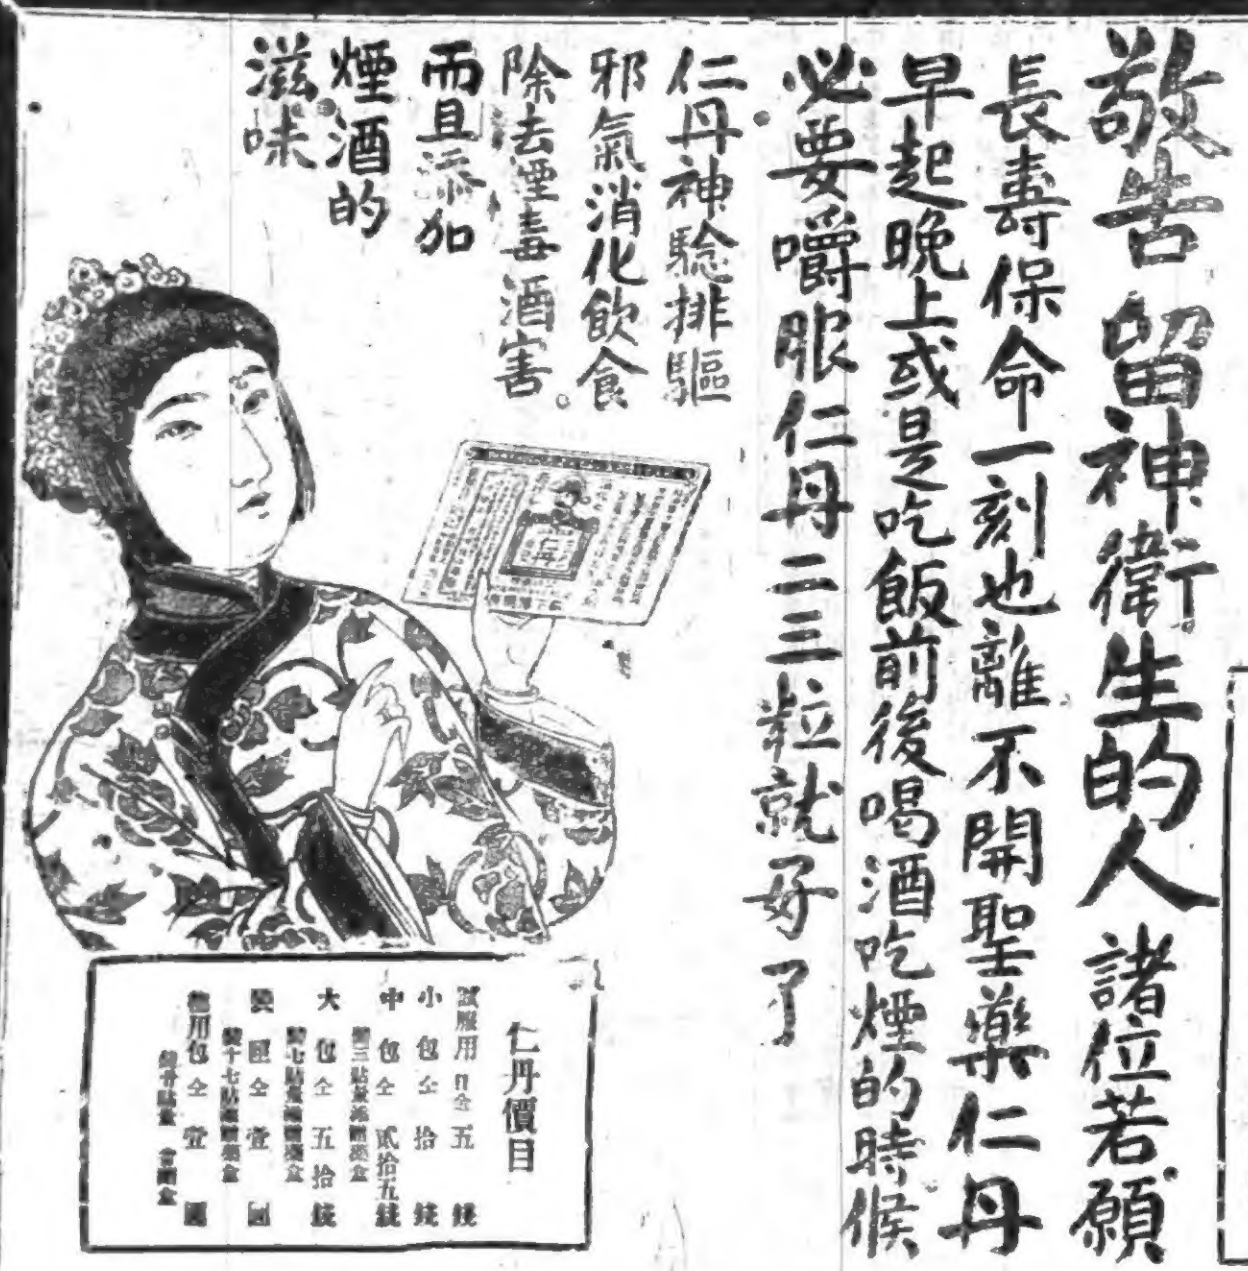 敬告留神衛生的人諸位若願
長壽保命一刻也離不開聖藥仁丹
早起晚上或是吃飯前後喝酒吃煙的時候
必要嚼服仁丹二三粒就好了
仁丹神驗排驅
邪氣消化飲食
除去煙毒酒害。
而且添加
煙酒的
滋味
仁丹
仁丹價目
試服用 五錢
小包仝拾錢
中包仝貳拾五錢
大包仝五拾錢
匣仝壹圓
用包仝壹圓